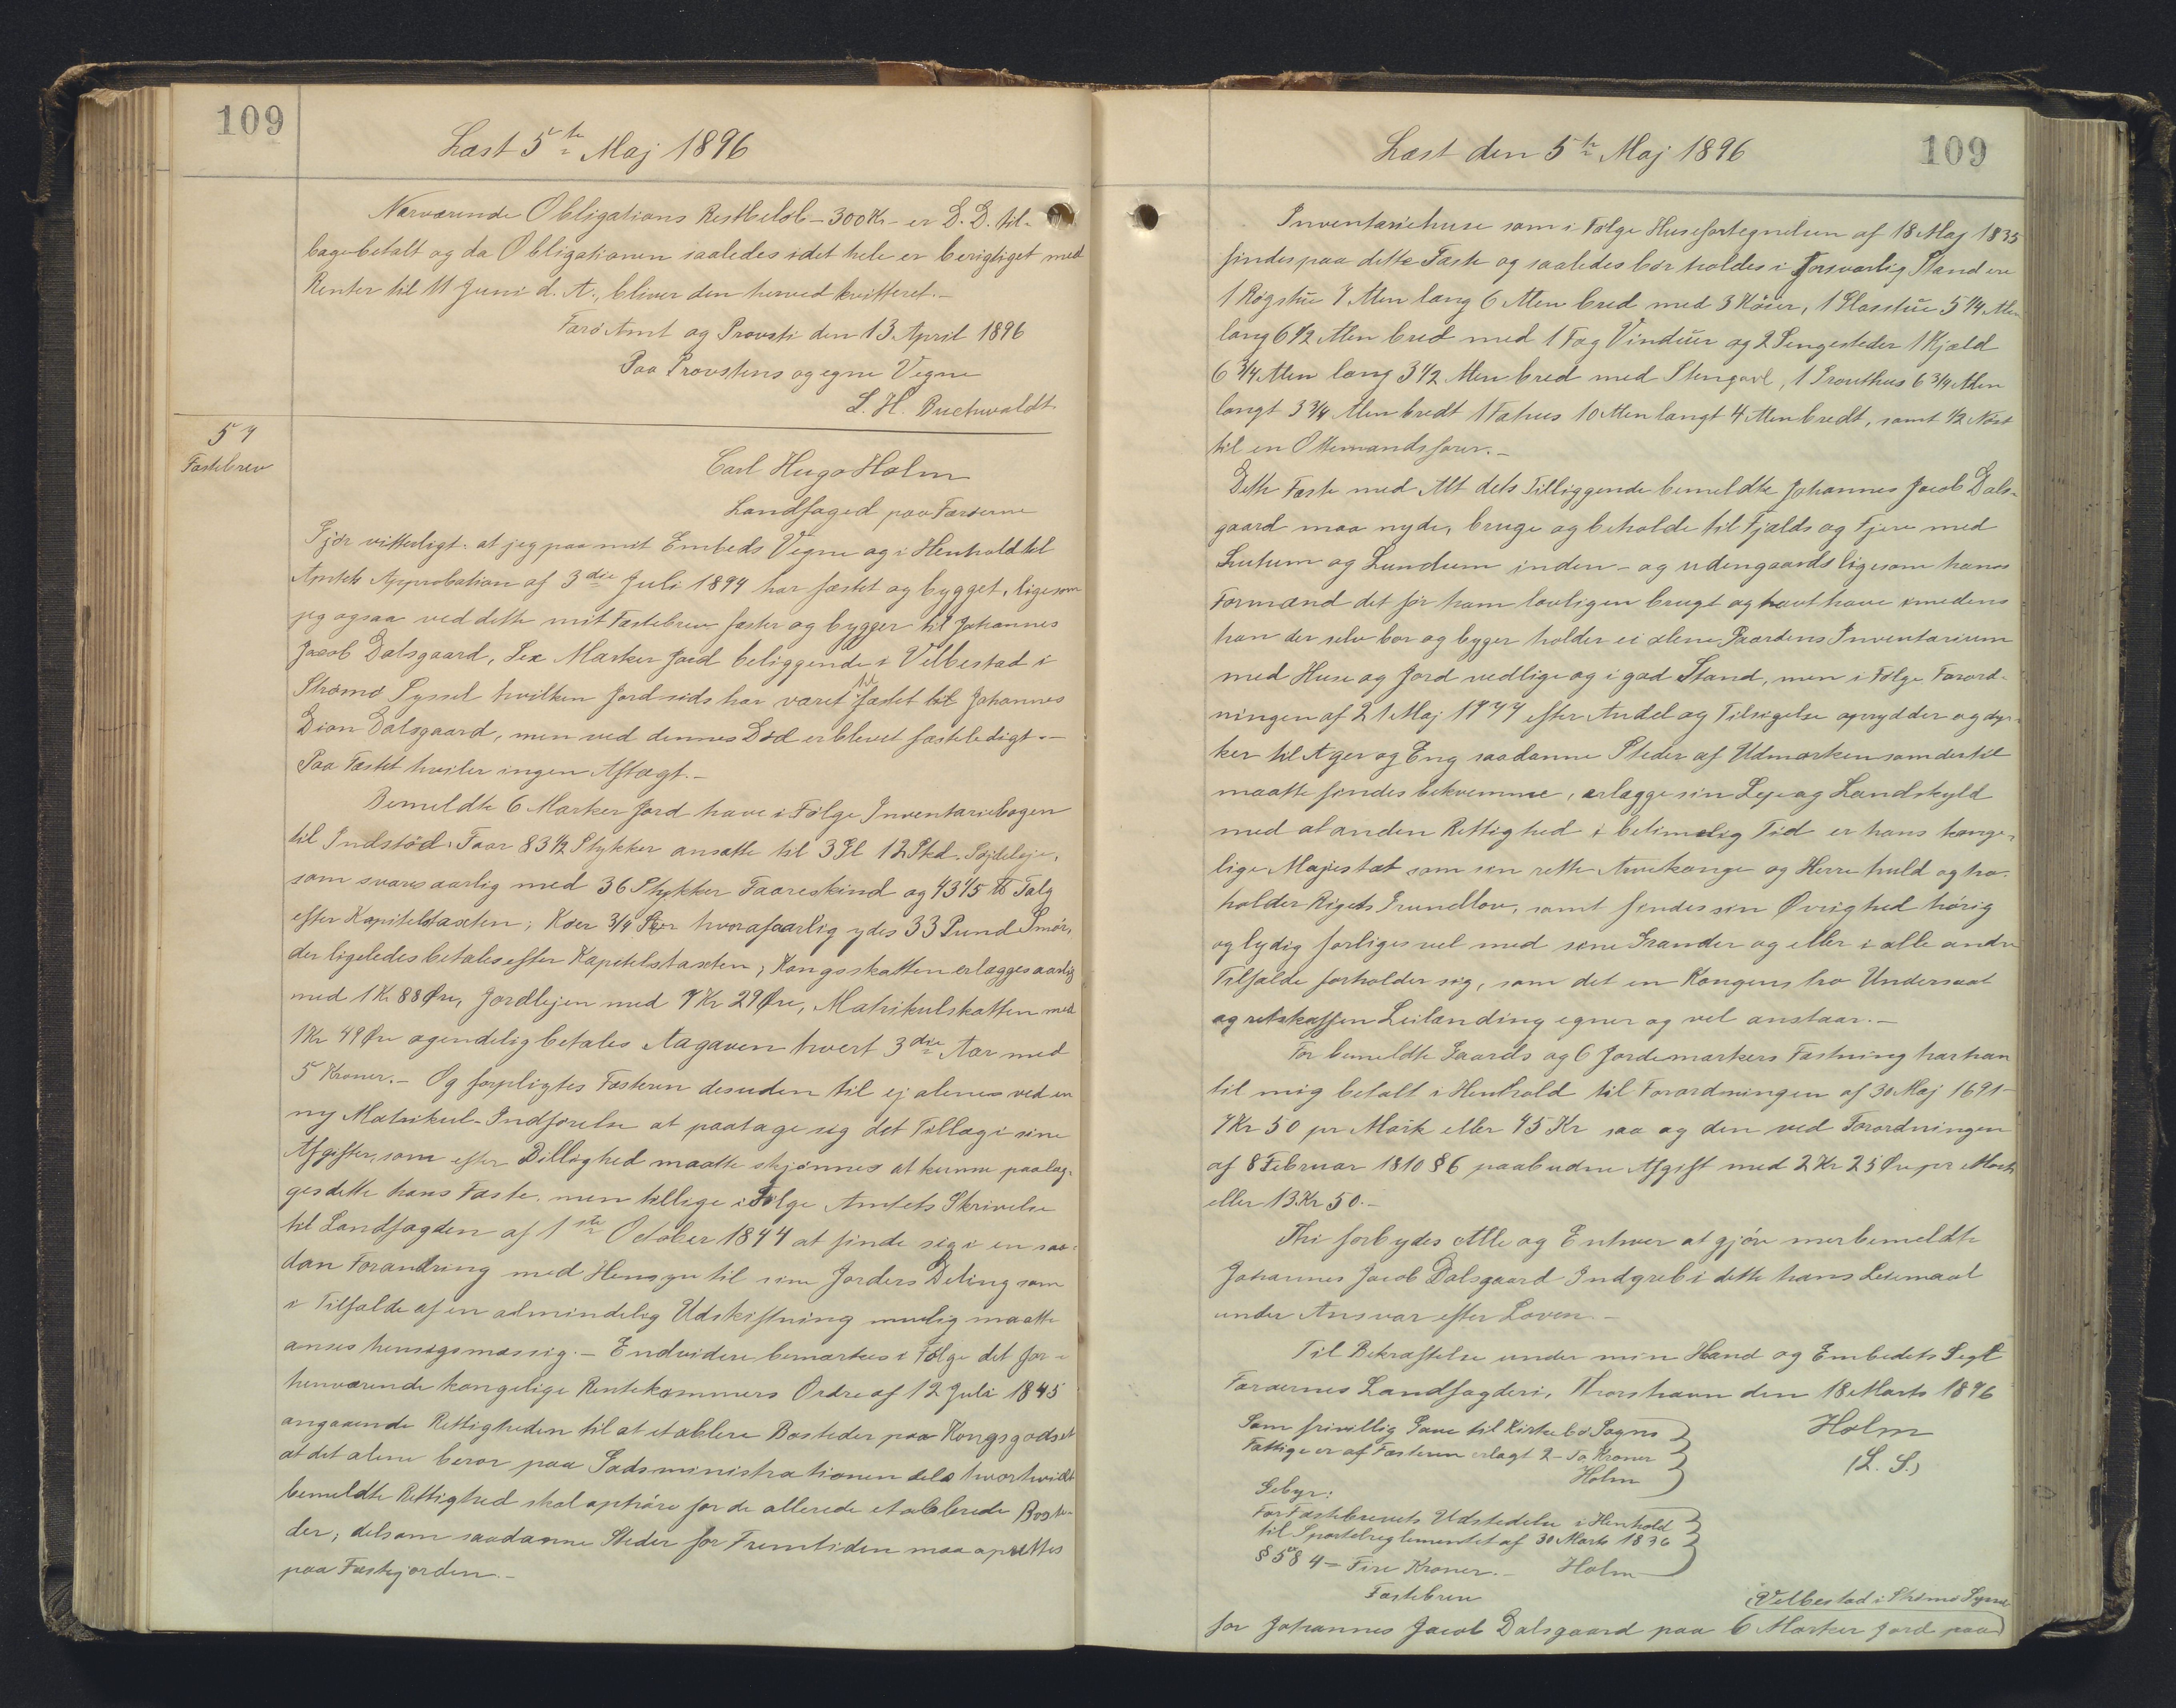 109
Læst 5te Maj 1896
Nærværende Obligations Restbeløb - 300 Kr - er D. D. til-
bagebetalt og da Obligationen saaledes i det hele er berigtiget med
Renter til 11 Juni d. A., bliver den herved kvitteret.-
Færø Amt og Provsti den 13 April 1896
Paa Provstens og egne Vegne
L. H. Buchwaldt
57
Fæstebrev
Carl Hugo Holm
Landfoged paa Færøerne
Gjør vitterligt: at jeg paa mit Embeds Vegne og i Henhold til
Amtets Approbation af 3die Juli 1894 har fæstet og bygget, ligesom
jeg ogsaa ved dette mit Fæstebrev fæster og bygger til Johannes
Jacob Dalsgaard, Sex Marker Jord beliggende i Velbestad i
Strømø Syssel hvilken Jord sids har været fæstet til Johannes
Dion Dalsgaard, men ved dennes Død er blevet fæsteledigt.-
Paa Fæstet hviler ingen Aftægt.-
Bemeldte 6 Marker Jord have i Følge Inventariebogen
til Indstød: Faar 83 1/2 Stykker ansatte til 3 Gl 12 Skd. Søjdeleje,
som svares aarlig med 36 Stykker Faareskind og 43 1/5 ℔ Talg
efter Kapitelstaxten; Køer 3/4 Stkr hvoraf aarlig ydes 33 Pund Smør,
der ligeledes betales efter Kapitelstaxten, Kongsskatten erlægges aarlig
med 1 Kr 88 Øre, Jordlejen med 7 Kr 29 Øre, Matrikulskatten med
1 Kr 49 Øre og endelig betales Aagaven hvert 3die Aar med
5 Kroner.- Og forpligtes Fæsteren desuden til ej alene ved en
ny Matrikul-Indførelse at paatage sig det Tillæg i sine
Afgifter, som efter Billighed maatte skjønnes at kunne paalæg-
ges dette hans Fæste, men tillige i Følge Amtets Skrivelse
til Landfogden af 1ste October 1844 at finde sig i en saa-
dan Forandring med Hensyn til sine Jorders Deling som
i Tilfælde af en almindelig Udskiftning muelig maatte
anses hensigsmæssig.- Endvidere bemærkes i Følge det for-
henværende kongelige Rentekammers Ordre af 12 Juli 1845
angaaende Rettigheden til at etablere Bosteder paa Kongsgodset
at det alene beror paa Godsministrationen dels hvorhvidt
bemeldte Rettighed skal ophøre for de allerede etablerede Boste-
der, dels om saadanne Steder for Fremtiden maa oprettes
paa Fæstejorden.-
Læst den 5te Maj 1896
109
Inventariehuse som i Følge Husefortegnelsen af 18 Maj 1835
findes paa dette Fæste og saaledes bør holdes i forsvarlig Stand ere
1 Røgstue 7 Alen lang 6 Alen bred med 3 Køier, 1 Glasstue 5 1/4 Alen
lang 6 1/2 Alen bred med 1 Fag Vinduer og 2 Sengesteder 1 Kjæld
6 3/4 Alen lang 3 1/2 Alen bred med Stengavl, 1 Trouthus 6 3/4 Alen
langt 3 3/4 Alen bredt 1 Fæhus 10 Alen langt 4 Alen bredt, samt 1/2 Nøst
til en Ottemandsfarer.-
Dette Fæste med Alt dets Tilliggende bemeldte Johannes Jacob Dals-
gaard maa nyde, bruge og beholde til Fjælds og Fjere med
Lutum og Lundum inden- og udengaards ligesom hans
Formænd det før ham lovligen brugt og havt have imedens
han der selv bor og byger holder ei alene Gaardens Inventarium
med Huse og Jord vedlige og i god Stand, men i Følge Forord-
ningen af 21 Maj 1777 efter Andel og Tilsigelse oprydder og dyr-
ker til Ager og Eng saadanne Steder af Udmarken som dertil
maatte findes bekvemme, erlægge sin Leje og Landskyld
med al anden Rettighed i betimelig Tid er hans konge-
lige Majestæt som sin rette Arvekonge og Herre huld og tro.
holder Rigets Grundlov, samt findes sin Øvrighed hørig
og lydig forliges vel med sine Grander og eller i alle andre
Tilfælde forholder sig, som det en Kongens tro Undersaat
og retskaffen Leilænding egner og vel anstaar.-
For bemeldte Gaards og 6 Jordemarkers Fæstning har han
til mig betalt i Henhold til Forordningen af 30 Maj 1691-
7 Kr 50 pr Mark eller 45 Kr saa og den ved Forordningen
af 8 Februar 1810 § 6 paabudne Afgift med 2 Kr 25 Øre pr Mark
eller 13 Kr 50.-
Thi forbydes Alle og Enhver at gjøre merbemeldte
Johannes Jacob Dalsgaard Indgreb i dette hans Leiemaal
under Ansvar efter Loven.-
Til Bekræftelse under min Haand og Embedets Segl
Færøernes Landfogderi, Thorshavn den 18 Marts 1896
Holm
(L. S.)
Som frivillig Gave til Kirkebø Sogns
Fattige er af Fæsteren erlagt 2 - To Kroner
Holm
Gebyr:
For Fæstebrevets Udstedelse i Henhold
til Sportelreglementet af 30 Marts 1836
§ 58 4 = Fire Kroner.- Holm
Fæstebrev
for Johannes Jacob Dalsgaard paa 6 Marker Jord paa
Velbestad i Strømø Syssel